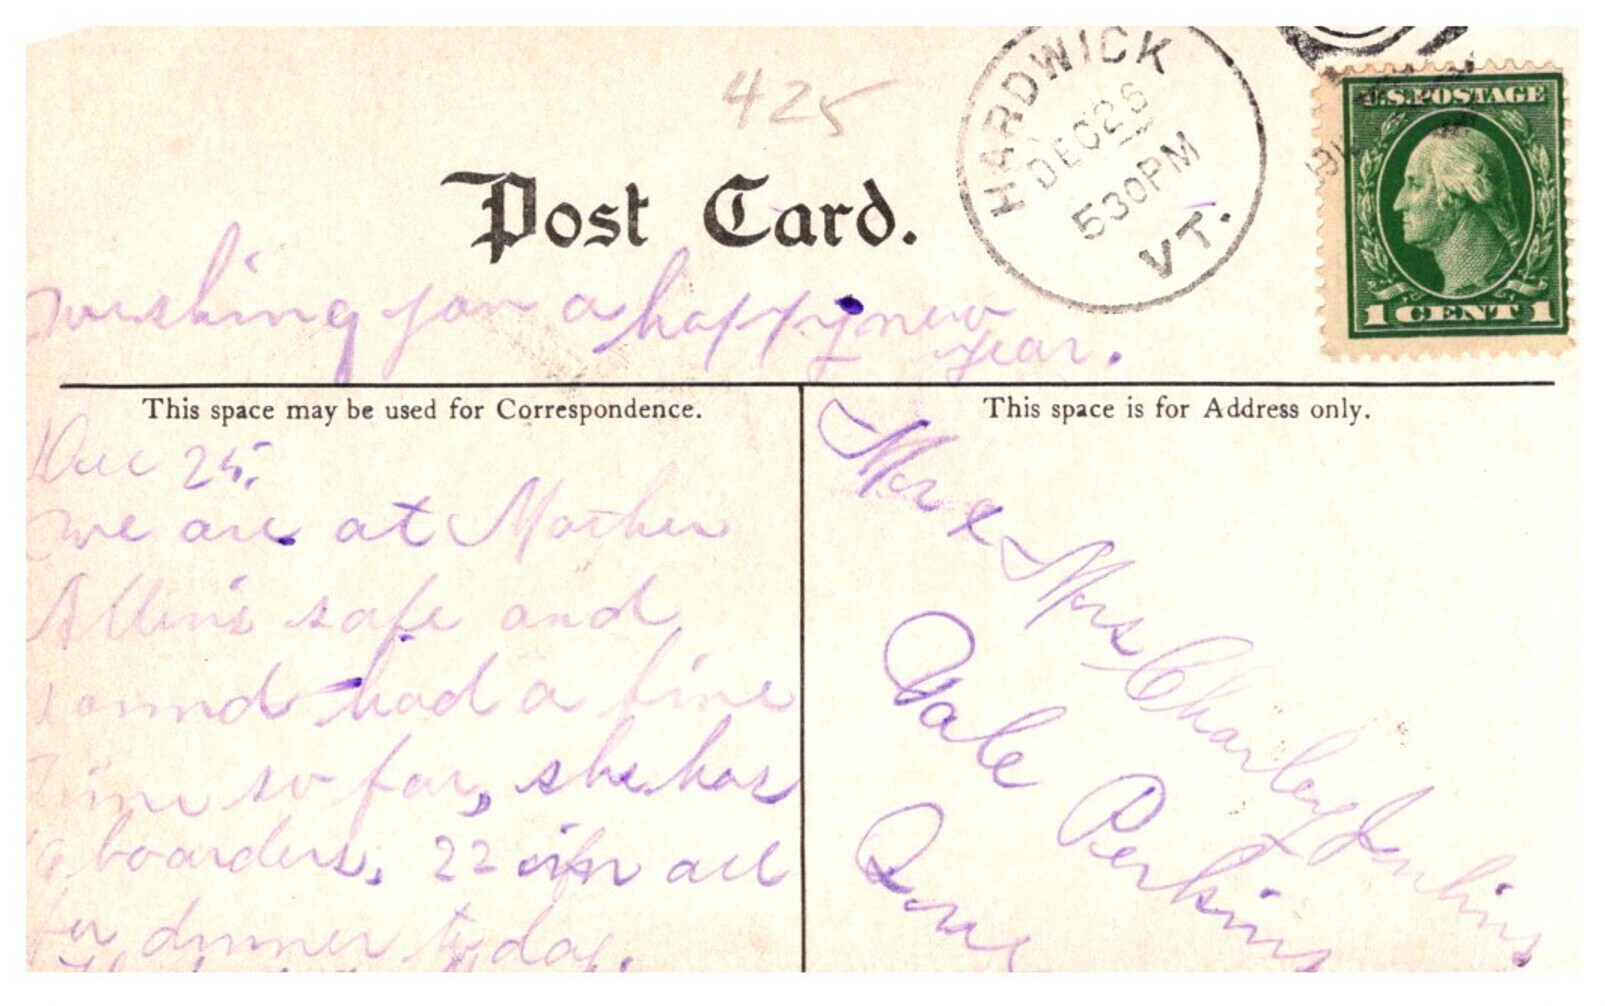 425
HARDWICK
DEC 26
530PM
VT.
U.S. POSTAGE
1 CENT 1
Post Card.
wishing you a happy new
year.
This space may be used for Correspondence.
This space is for Address only.
Dec 25.
we are at Mother
Allen's safe and
sound had a fine
time so far, she has
boarders, 22 in all
for dinner today.
Mr & Mrs Charley Jenkins
Care Perkins